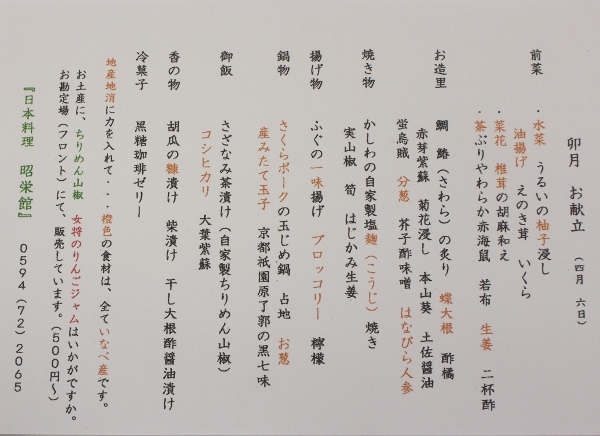 卯月　お献立　（四月　六日）
前菜　・水菜　うるいの柚子浸し
油揚げ　えのき茸　いくら
・菜花　椎茸の胡麻和え
・茶ぶりやわらか赤海鼠　若布　生姜　二杯酢
お造里　鯛　鰆（さわら）の炙り　蝶大根　酢橘
赤芽紫蘇　菊花浸し　本山葵　土佐醤油
蛍烏賊　分葱　芥子酢味噌　はなびら人参
焼き物　かしわの自家製塩麹（こうじ）焼き
実山椒　筍　はじかみ生姜
揚げ物　ふぐの一味揚げ　ブロッコリー　檸檬
鍋物　さくらポークの玉じめ鍋　占地　お葱
産みたて玉子　京都祇園原了郭の黒七味
御飯　さざなみ茶漬け（自家製ちりめん山椒）
コシヒカリ　大葉紫蘇
香の物　胡瓜の糠漬け　柴漬け　干し大根酢醤油漬け
冷菓子　黒糖珈琲ゼリー
地産地消に力を入れて・・・橙色の食材は、全ていなべ産です。
お土産に、ちりめん山椒　女将のりんごジャムはいかがですか。
お勘定場（フロント）にて、販売しています。（500円～）
『日本料理　昭栄館』　0594（72）2065